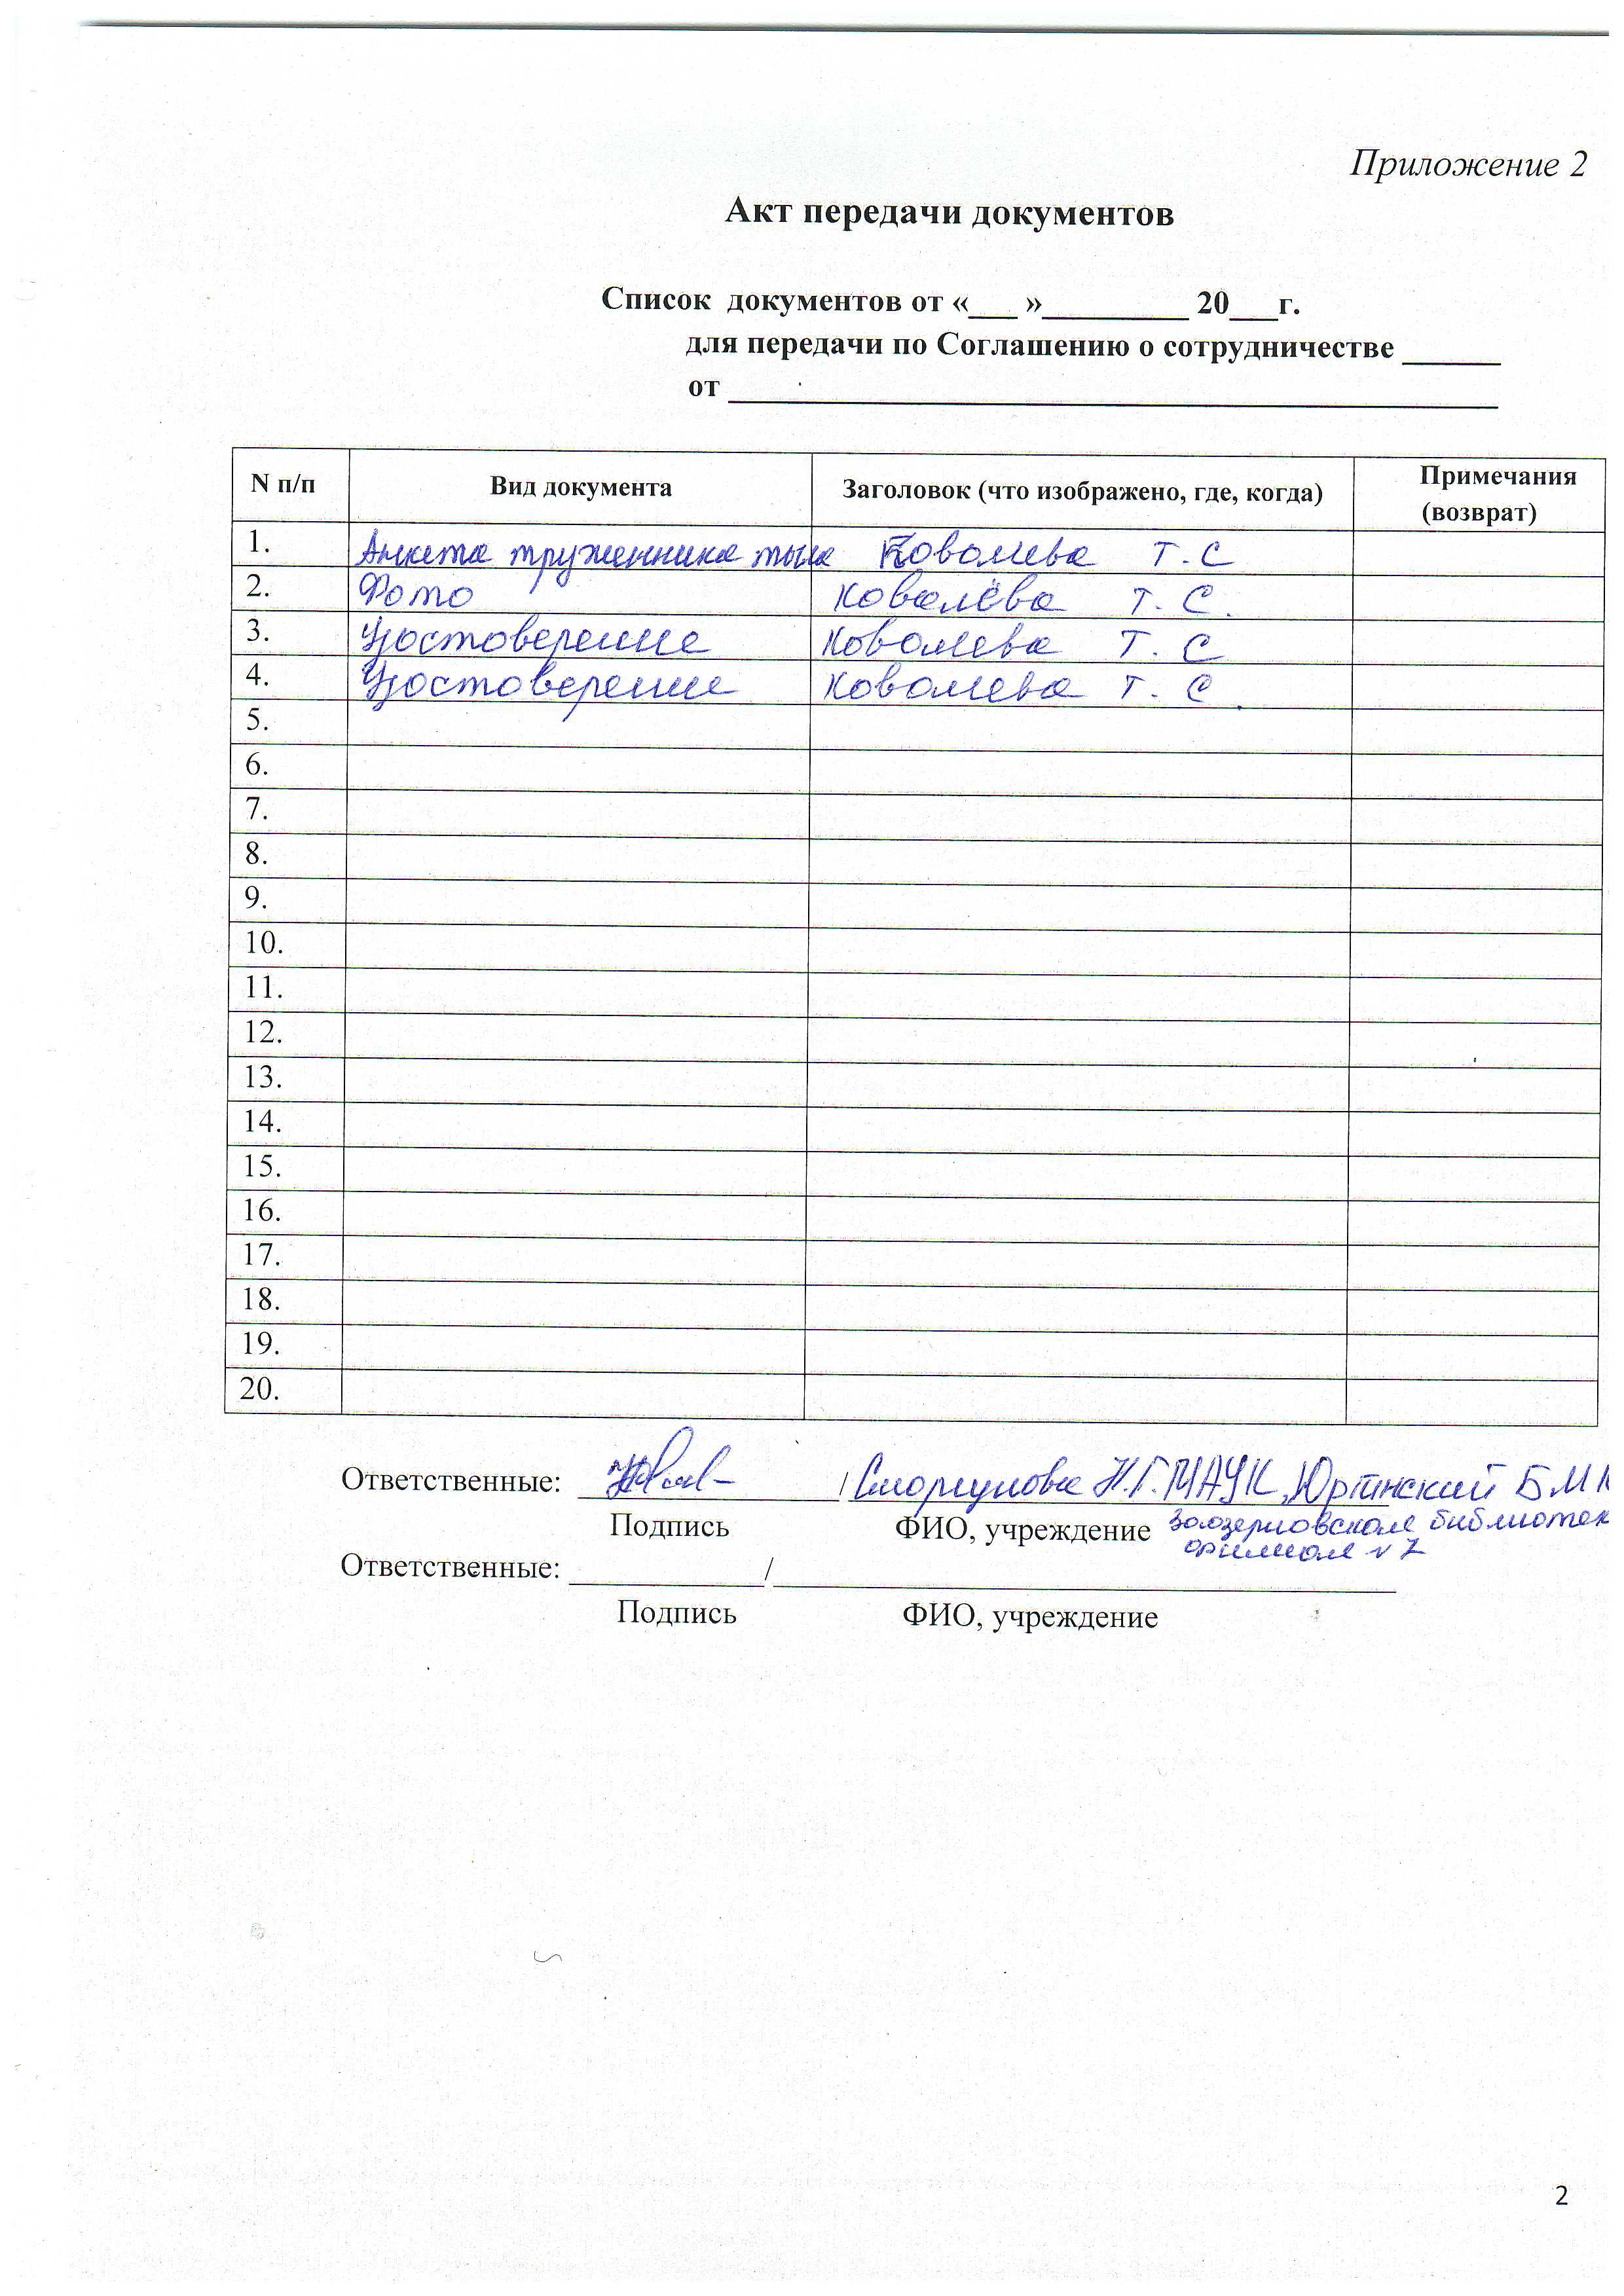 Приложение 2
Акт передачи документов
Список документов от «___ »_________ 20___г.
для передачи по Соглашению о сотрудничестве ______
от ______
N п/п Вид документа Заголовок (что изображено, где, когда) Примечания (возврат)
1. Анкета труженника тыла Ковалева Т.С
2. Фото Ковалёва Т. С.
3. Удостоверение Ковалева Т. С
4. Удостоверение Ковалева Т. С.
5.
6.
7.
8.
9.
10.
11.
12.
13.
14.
15.
16.
17.
18.
19.
20.
Ответственные: ______ / Сморгунова Н.Г. МАУК, Юргинский БМ
Подпись ФИО, учреждение Заозерновская библиотек
филиал №7
Ответственные: ______/______
Подпись ФИО, учреждение
2